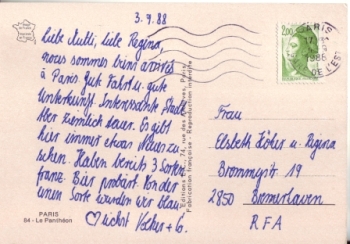 3.9.88
Liebe Mutti, liebe Regina,
nous sommes bien arrivés
à Paris. Gute Fahrt u. gute
Unterkunft. Interessante Stadt.
Aber ziemlich teuer. Es gibt
hier immer etwas Neues zu
sehen. Haben bereits 3 Sorten
franz. Bier probiert. Von der
einen Sorte wurden wir blau.
PARIS
84 - Le Panthéon
Fabrication française - Reproduction interdite
2,00
PARIS
1988
Frau
Elsbeth u. Regina
2850 Bremerhaven
RFA